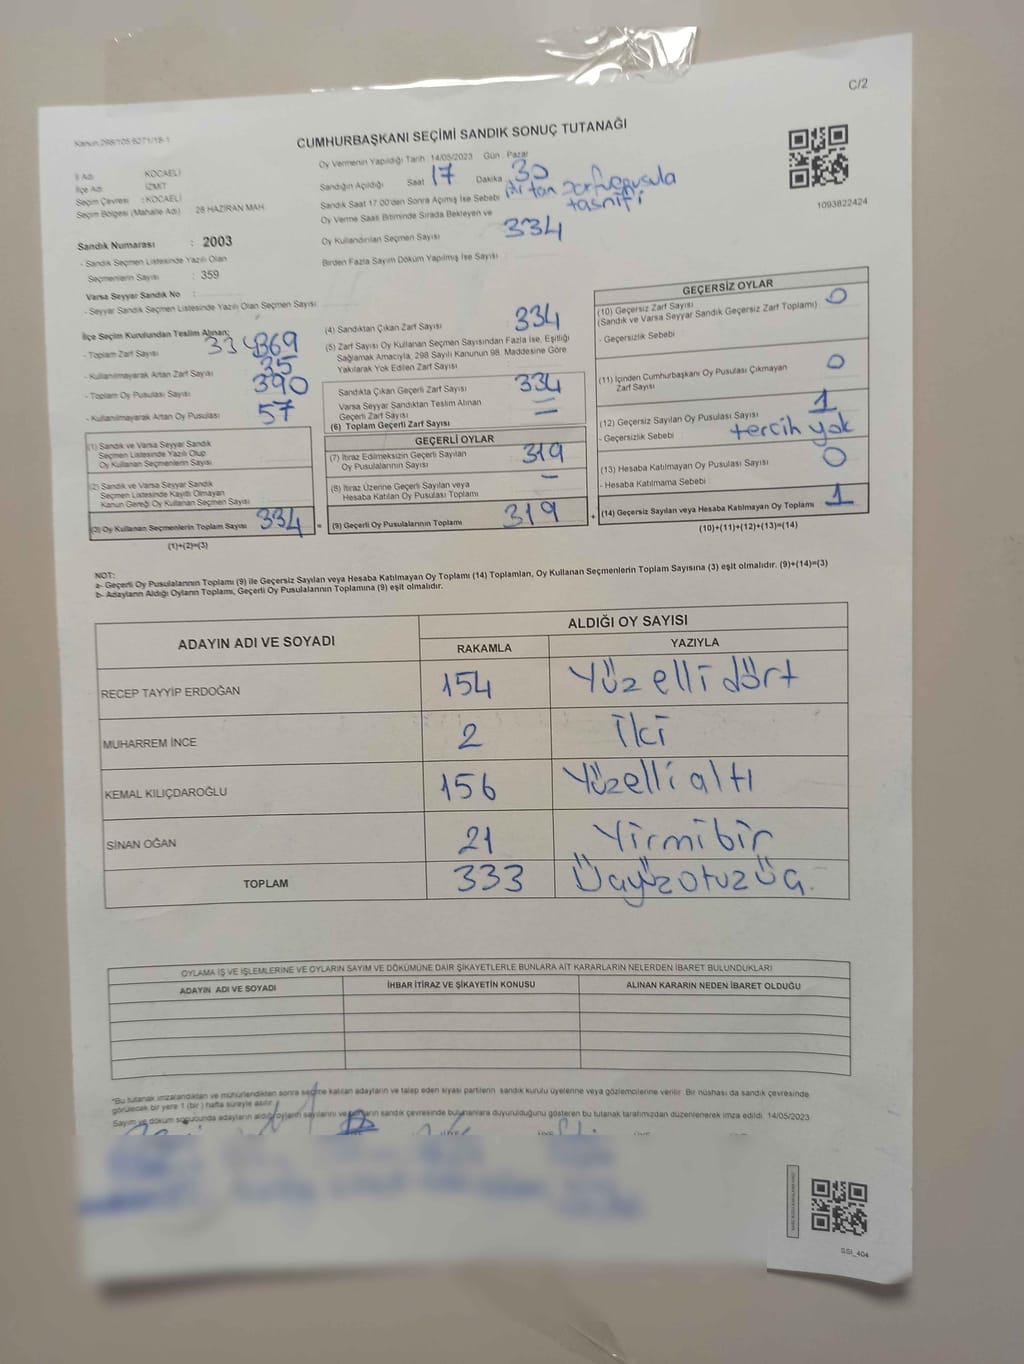 C/2
Kanun:298/105.6271/18-1
CUMHURBAŞKANI SEÇİMİ SANDIK SONUÇ TUTANAĞI
İl Adı KOCAELİ
İlçe Adı İZMİT
Seçim Çevresi : KOCAELİ
Seçim Bölgesi (Mahalle Adı) : 28 HAZİRAN MAH.
Oy Vermenin Yapıldığı Tarih : 14/05/2023 Gün : Pazar
Sandığın Açıldığı Saat 17 Dakika 30
Sandık Saat 17.00'den Sonra Açılmış İse Sebebi Artan zarf pusula
tasnifi
Oy Verme Saati Bitiminde Sırada Bekleyen ve
Oy Kullandırılan Seçmen Sayısı 334
Birden Fazla Sayım Döküm Yapılmış İse Sayısı
1093822424
Sandık Numarası : 2003
- Sandık Seçmen Listesinde Yazılı Olan
Seçmenlerin Sayısı : 359
Varsa Seyyar Sandık No :
- Seyyar Sandık Seçmen Listesinde Yazılı Olan Seçmen Sayısı:
İlçe Seçim Kurulundan Teslim Alınan:
- Toplam Zarf Sayısı 334 369
- Kullanılmayarak Artan Zarf Sayısı 35
- Toplam Oy Pusulası Sayısı 390
- Kullanılmayarak Artan Oy Pusulası 57
(1) Sandık ve Varsa Seyyar Sandık
Seçmen Listesinde Yazılı Olup
Oy Kullanan Seçmenlerin Sayısı
(2) Sandık ve Varsa Seyyar Sandık
Seçmen Listesinde Kayıtlı Olmayan
Kanun Gereği Oy Kullanan Seçmen Sayısı
(3) Oy Kullanan Seçmenlerin Toplam Sayısı 334 =
(1)+(2)=(3)
(4) Sandıktan Çıkan Zarf Sayısı 334
(5) Zarf Sayısı Oy Kullanan Seçmen Sayısından Fazla İse, Eşitliği
Sağlamak Amacıyla, 298 Sayılı Kanunun 98. Maddesine Göre
Yakılarak Yok Edilen Zarf Sayısı
Sandıkta Çıkan Geçerli Zarf Sayısı 334
Varsa Seyyar Sandıktan Teslim Alınan
Geçerli Zarf Sayısı —
(6) Toplam Geçerli Zarf Sayısı —
GEÇERLİ OYLAR
(7) İtiraz Edilmeksizin Geçerli Sayılan
Oy Pusulalarının Sayısı 319
(8) İtiraz Üzerine Geçerli Sayılan veya
Hesaba Katılan Oy Pusulası Toplamı —
(9) Geçerli Oy Pusulalarının Toplamı 319 +
GEÇERSİZ OYLAR
(10) Geçersiz Zarf Sayısı 0
(Sandık ve Varsa Seyyar Sandık Geçersiz Zarf Toplamı)
- Geçersizlik Sebebi
(11) İçinden Cumhurbaşkanı Oy Pusulası Çıkmayan
Zarf Sayısı 0
(12) Geçersiz Sayılan Oy Pusulası Sayısı 1
- Geçersizlik Sebebi tercih yok
(13) Hesaba Katılmayan Oy Pusulası Sayısı 0
- Hesaba Katılmama Sebebi
(14) Geçersiz Sayılan veya Hesaba Katılmayan Oy Toplamı 1
(10)+(11)+(12)+(13)=(14)
NOT:
a- Geçerli Oy Pusulalarının Toplamı (9) ile Geçersiz Sayılan veya Hesaba Katılmayan Oy Toplamı (14) Toplamları, Oy Kullanan Seçmenlerin Toplam Sayısına (3) eşit olmalıdır. (9)+(14)=(3)
b- Adayların Aldığı Oyların Toplamı, Geçerli Oy Pusulalarının Toplamına (9) eşit olmalıdır.
ADAYIN ADI VE SOYADI ALDIĞI OY SAYISI
RAKAMLA YAZIYLA
RECEP TAYYİP ERDOĞAN 154 Yüz elli dört
MUHARREM İNCE 2 iki
KEMAL KILIÇDAROĞLU 156 Yüzelli altı
SİNAN OĞAN 21 Yirmi bir
TOPLAM 333 Üçyüzotuzüç.
OYLAMA İŞ VE İŞLEMLERİNE VE OYLARIN SAYIM VE DÖKÜMÜNE DAİR ŞİKAYETLERLE BUNLARA AİT KARARLARIN NELERDEN İBARET BULUNDUKLARI
ADAYIN ADI VE SOYADI İHBAR İTİRAZ VE ŞİKAYETİN KONUSU ALINAN KARARIN NEDEN İBARET OLDUĞU
*Bu tutanak imzalandıktan ve mühürlendikten sonra seçime katılan adayların ve talep eden siyasi partilerin sandık kurulu üyelerine veya gözlemcilerine verilir. Bir nüshası da sandık çevresinde
görülecek bir yere 1 (bir) hafta süreyle asılır.
Sayım ve döküm sonucunda adayların aldığı oyların sayılarını ve sandık çevresinde bulunanlara duyurulduğunu gösteren bu tutanak tarafımızdan düzenlenerek imza edildi. 14/05/2023
SSI_404